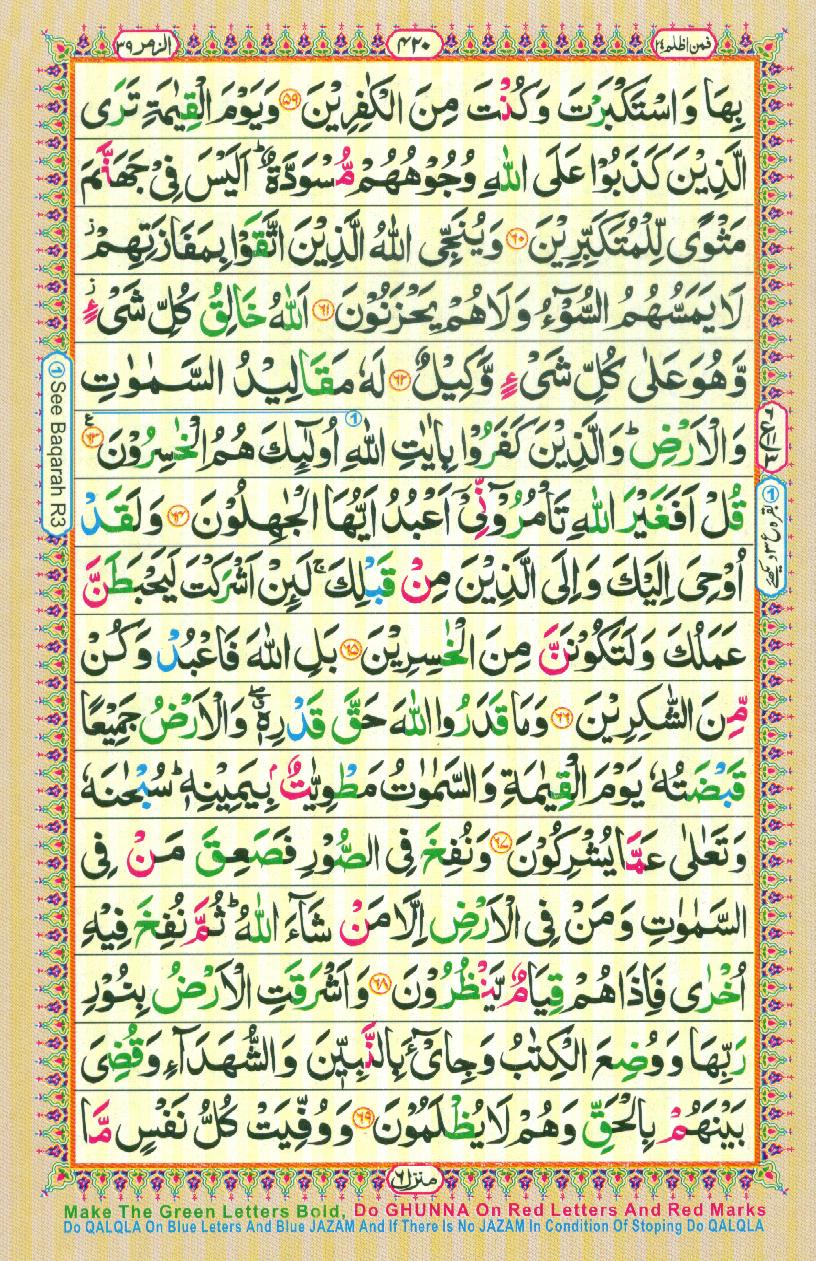 فمن اظلم ٢٤
٤٢٠
الزمر ٣٩
بِهَا وَ اسْتَكْبَرْتَ وَ كُنْتَ مِنَ الْكٰفِرِيْنَ ﴿٥٩﴾ وَيَوْمَ الْقِيٰمَةِ تَرَى
الَّذِيْنَ كَذَبُوْا عَلَى اللّٰهِ وُجُوْهُهُمْ مُّسْوَدَّةٌ ؕ اَلَيْسَ فِىْ جَهَنَّمَ
مَثْوًى لِّلْمُتَكَبِّرِيْنَ ﴿٦٠﴾ وَيُنَجِّى اللّٰهُ الَّذِيْنَ اتَّقَوْا بِمَفَازَتِهِمْ ز
لَا يَمَسُّهُمُ السُّوْٓءُ وَلَا هُمْ يَحْزَنُوْنَ ﴿٦١﴾ اَللّٰهُ خَالِقُ كُلِّ شَىْءٍ ز
وَّهُوَ عَلٰى كُلِّ شَىْءٍ وَّكِيْلٌ ﴿٦٢﴾ لَهٗ مَقَالِيْدُ السَّمٰوٰتِ
وَ الْاَرْضِ ؕ وَ الَّذِيْنَ كَفَرُوْا بِاٰيٰتِ اللّٰهِ اُولٰٓئِكَ هُمُ الْخٰسِرُوْنَ ﴿٦٣﴾ ع
قُلْ اَفَغَيْرَ اللّٰهِ تَاْمُرُوْٓنِّىْٓ اَعْبُدُ اَيُّهَا الْجٰهِلُوْنَ ﴿٦٤﴾ وَ لَقَدْ
اُوْحِىَ اِلَيْكَ وَ اِلَى الَّذِيْنَ مِنْ قَبْلِكَ ۚ لَئِنْ اَشْرَكْتَ لَيَحْبَطَنَّ
عَمَلُكَ وَ لَتَكُوْنَنَّ مِنَ الْخٰسِرِيْنَ ﴿٦٥﴾ بَلِ اللّٰهَ فَاعْبُدْ وَ كُنْ
مِّنَ الشّٰكِرِيْنَ ﴿٦٦﴾ وَمَا قَدَرُوا اللّٰهَ حَقَّ قَدْرِهٖ ۖ وَالْاَرْضُ جَمِيْعًا
قَبْضَتُهٗ يَوْمَ الْقِيٰمَةِ وَ السَّمٰوٰتُ مَطْوِيّٰتٌۢ بِيَمِيْنِهٖ ؕ سُبْحٰنَهٗ
وَ تَعٰلٰى عَمَّا يُشْرِكُوْنَ ﴿٦٧﴾ وَ نُفِخَ فِى الصُّوْرِ فَصَعِقَ مَنْ فِى
السَّمٰوٰتِ وَ مَنْ فِى الْاَرْضِ اِلَّا مَنْ شَآءَ اللّٰهُ ؕ ثُمَّ نُفِخَ فِيْهِ
اُخْرٰى فَاِذَا هُمْ قِيَامٌ يَّنْظُرُوْنَ ﴿٦٨﴾ وَ اَشْرَقَتِ الْاَرْضُ بِنُوْرِ
رَبِّهَا وَ وُضِعَ الْكِتٰبُ وَ جِاىْٓءَ بِالنَّبِيّٖنَ وَ الشُّهَدَآءِ وَ قُضِىَ
بَيْنَهُمْ بِالْحَقِّ وَ هُمْ لَا يُظْلَمُوْنَ ﴿٦٩﴾ وَ وُفِّيَتْ كُلُّ نَفْسٍ مَّا
① See Baqarah R3
منزل ٦
Make The Green Letters Bold, Do GHUNNA On Red Letters And Red Marks
Do QALQLA On Blue Leters And Blue JAZAM And If There Is No JAZAM In Condition Of Stoping Do QALQLA